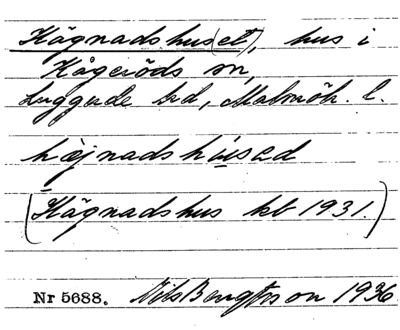 Hägnadshus(et), hus i
Kågeröds sn,
Luggude hd, Malmöh. l.
häjnadshúsəd
(Hägnadshus kb 1931.)
Nr 5688. Nils Bengtsson 1936.